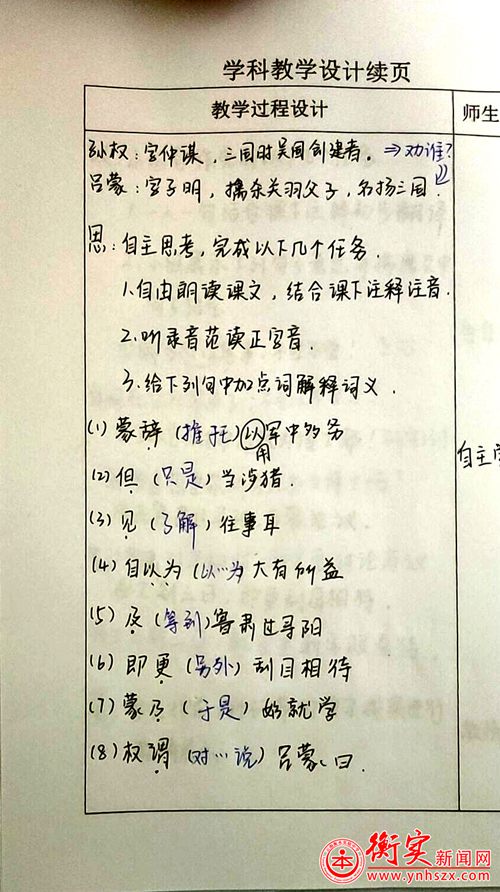 学科教学设计续页
教学过程设计
师生
孙权：字仲谋，三国时吴国创建者。⇒劝谁？
吕蒙：字子明，擒杀关羽父子，名扬三国．
思：自主思考，完成以下几个任务．
1.自由朗读课文，结合课下注释注音．
2.听录音范读正字音．
3.给下列句中加点词解释词义．
(1) 蒙辞 (推托) 以军中多务
用
(2) 但 (只是) 当涉猎
(3) 见 (了解) 往事耳
(4) 自以为 (以…为 大有所益
自主学
(5) 及 (等到) 鲁肃过寻阳
(6) 即更 (另外) 刮目相待
(7) 蒙乃 (于是) 始就学
(8) 权谓 (对…说) 吕蒙曰．
衡实新闻网
www.ynhszx.com